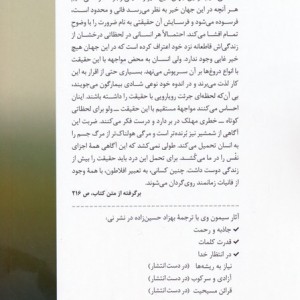 هر آنچه در این جهان خیر به نظر می‌رسد فانی و محدود است،
فرسوده می‌شود و فرسایش آن حقیقتی به نام ضرورت را با وضوح
تمام افشا می‌کند. احتمالاً هر انسانی در لحظاتی درخشان از
زندگی‌اش قاطعانه نزد خود اعتراف کرده است که در این جهان هیچ
خیر غایی وجود ندارد. ولی انسان به محض مواجهه با این حقیقت
با انواع دروغ‌ها بر آن سرپوش می‌نهد. بسیاری حتی از اقرار به این
کار لذت می‌برند و در اندوه خود نوعی شادی بیمارگون می‌جویند،
بی آن‌که لحظه‌ای جرئت رویارویی با حقیقت را داشته باشند. اینان
احساس می‌کنند مواجههٔ مستقیم با این حقیقت ــ ولو برای لحظاتی
کوتاه ــ خطری مهلک در بر دارد و درست فکر می‌کنند. ضربت این
آگاهی از شمشیر نیز بُرنده‌تر است و مرگی هولناک‌تر از مرگ جسم را
به انسان تحمیل می‌کند. طولی نمی‌کشد که این آگاهی همهٔ اجزای
نفْس را در ما می‌کُشد. برای تحمل این درد باید حقیقت را بیش از
زندگی دوست داشت. چنین کسانی، به تعبیر افلاطون، با همهٔ وجود
از فانیات زمانمند روی‌گردان می‌شوند.
برگرفته از متن کتاب، ص ۲۱۶
آثار سیمون وی با ترجمهٔ بهزاد حسین‌زاده در نشر نی:
✓ جاذبه و رحمت
✓ قدرت کلمات
✓ در انتظار خدا
نیاز به ریشه‌ها (در دست انتشار)
آزادی و سرکوب (در دست انتشار)
قرائن مسیحیت (در دست انتشار)